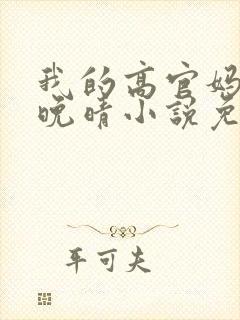 我的高官妈
晚晴小说免
平可夫